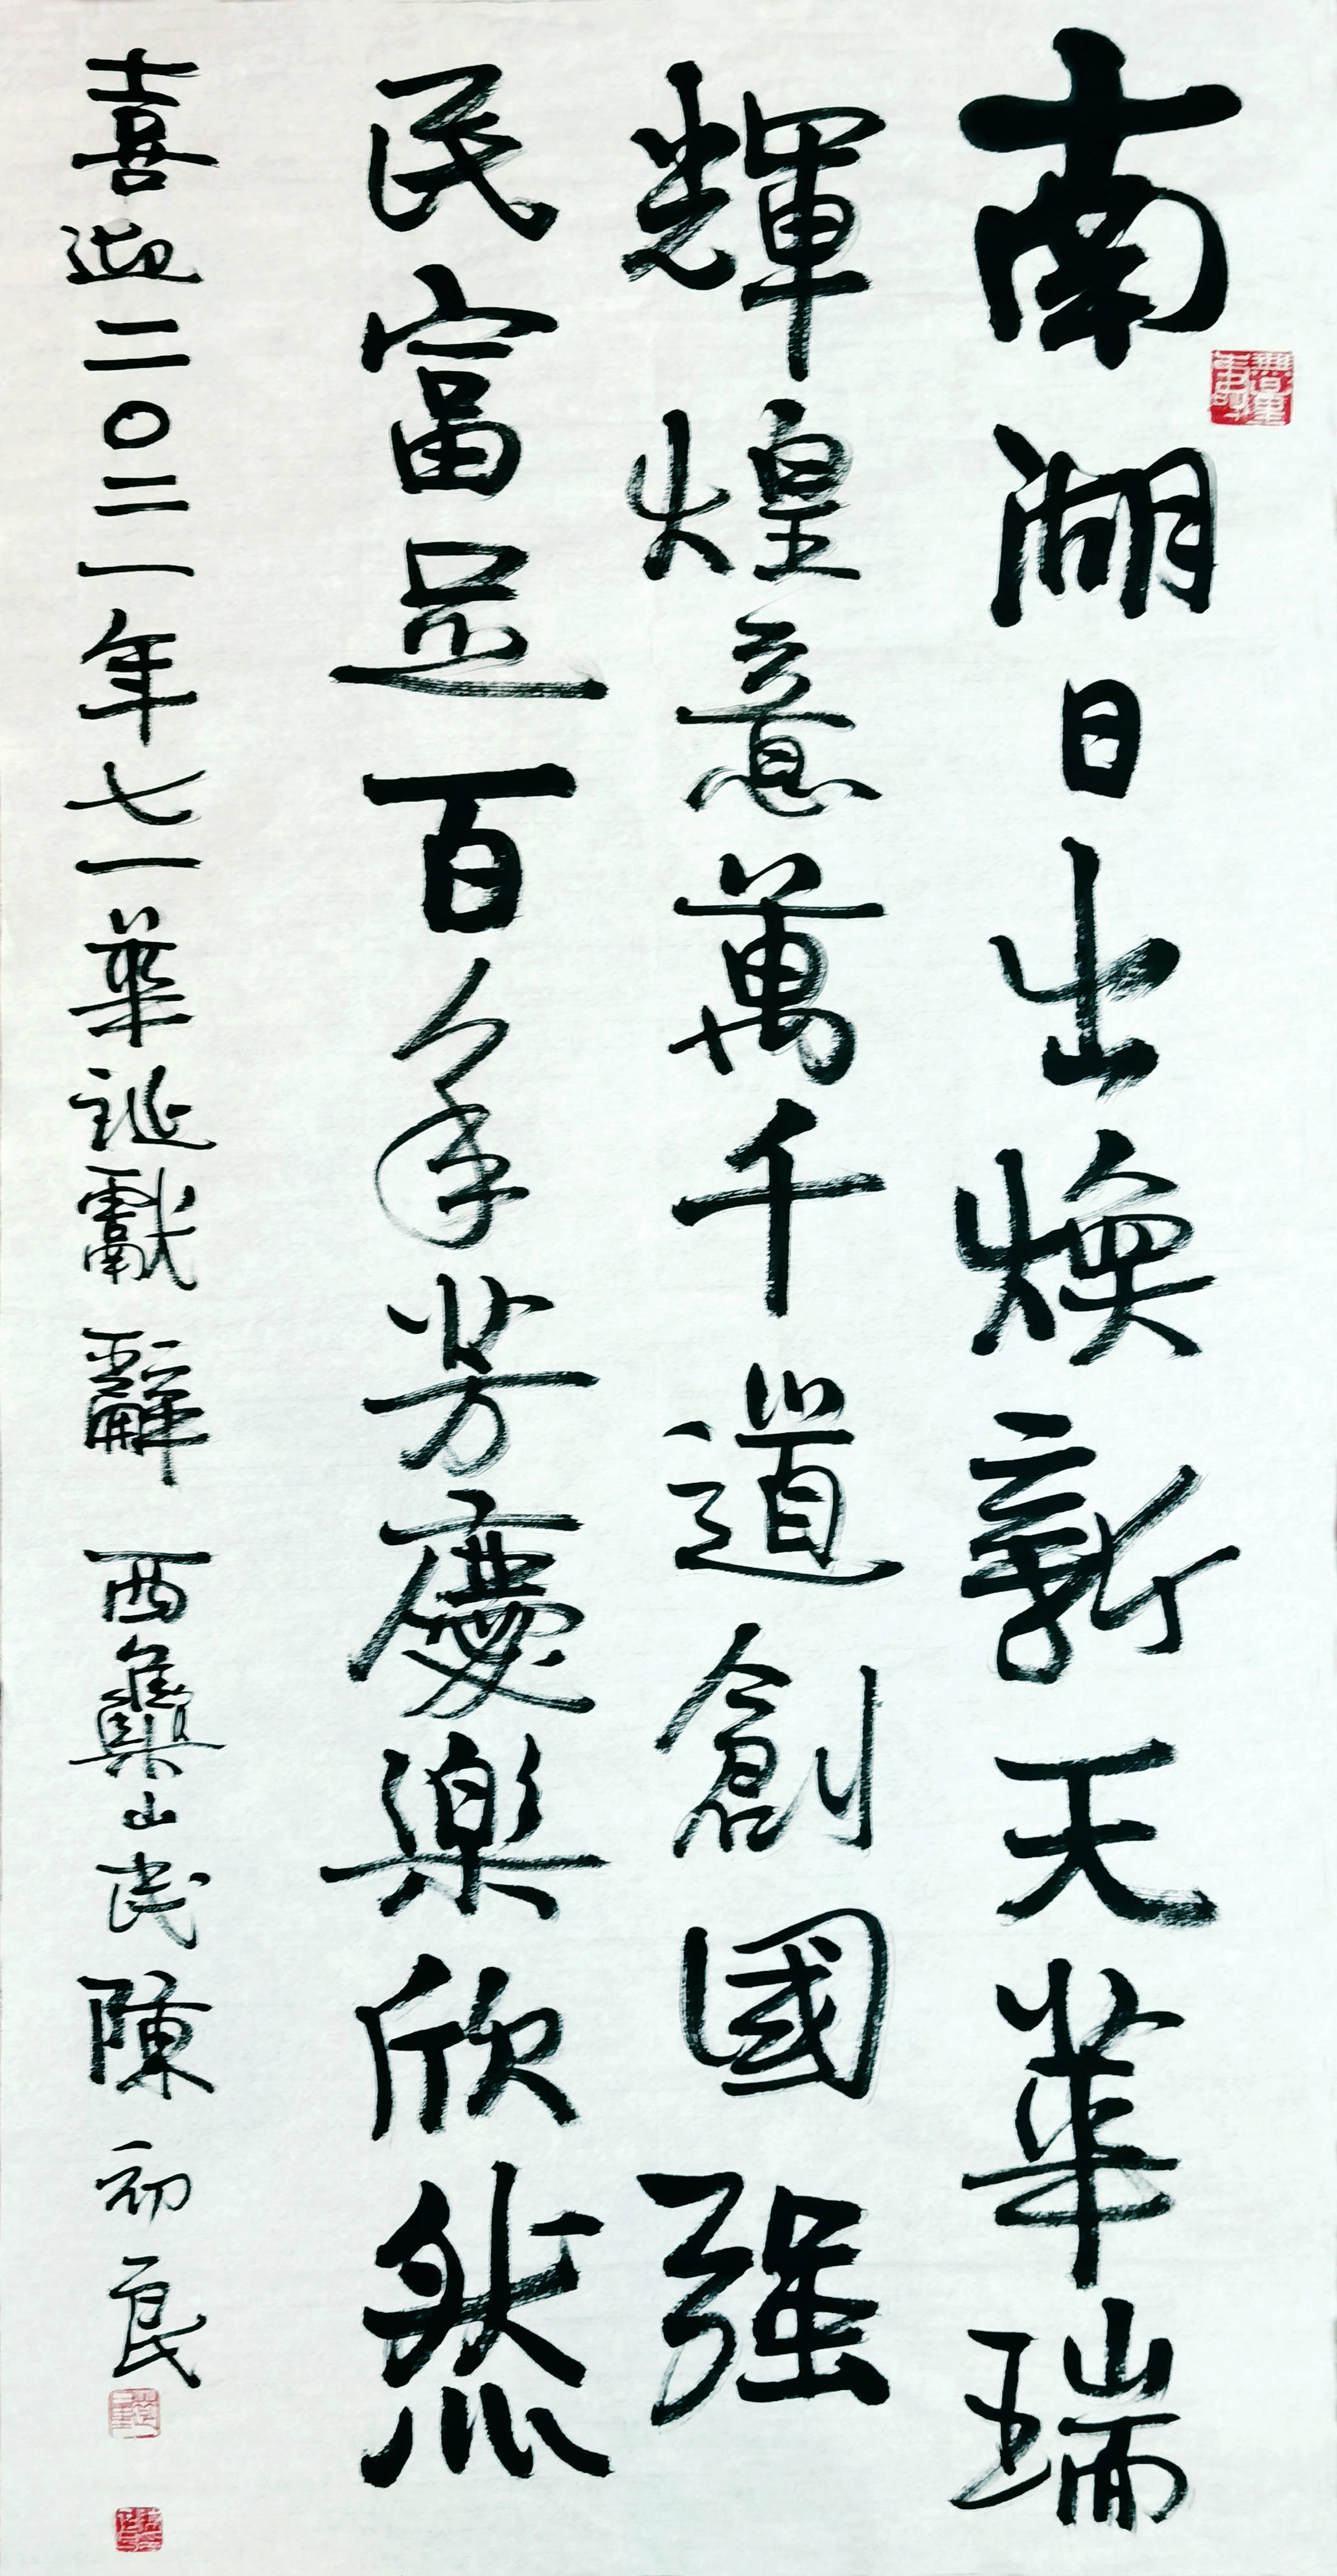 南湖日出煥新天華瑞
輝煌意萬千道創國强
民富足百年芳慶樂欣然
喜迎二〇二一年七一華誕獻辭 西彝山民 陳初良